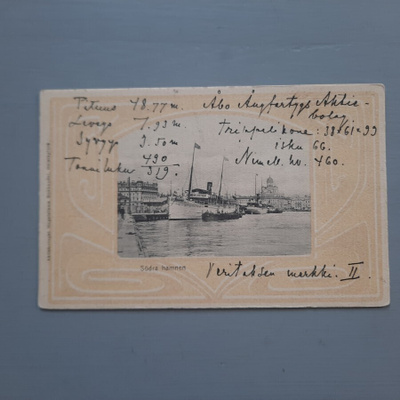 Pituus 48.77 m.
Leveys 7.93 m.
Syvyys 3.50 m
490
Tonniluku 319.
Åbo Ångfartygs Aktie-
bolag
Trippel kone: 38×61×99
isku 66.
Nimell. hv. 460.
Södra hamnen
Veritaksen merkki. II.